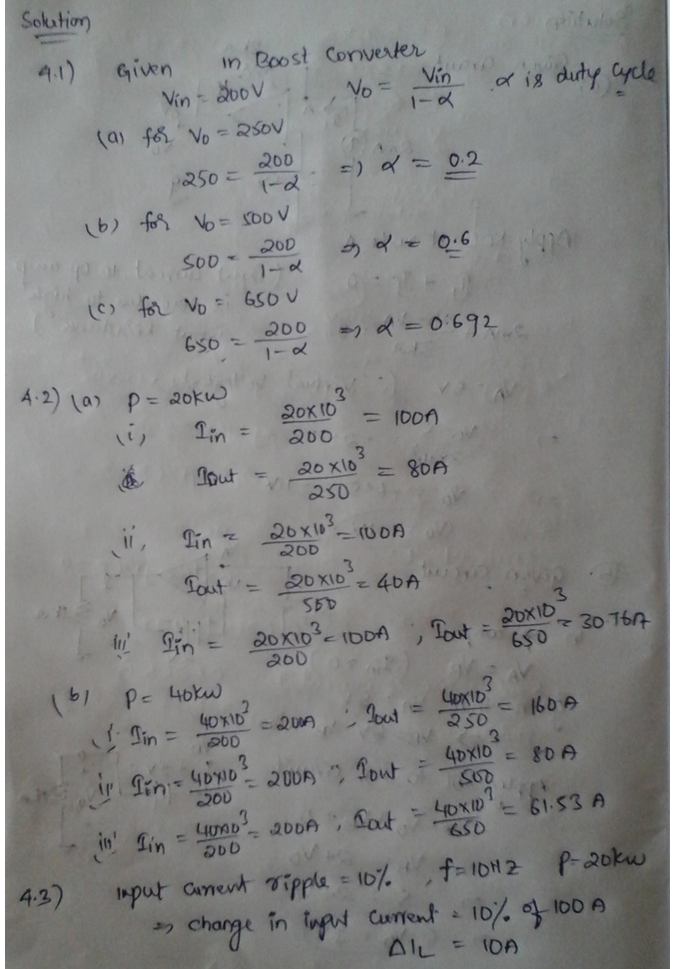 Solution
4.1) Given in Boost Converter
Vin = 200V , Vo = Vin / 1-α . α is duty cycle
(a) for Vo = 250V
250 = 200 / 1-α => α = 0.2
(b) for Vo = 500 V
500 = 200 / 1-α => α = 0.6
(c) for Vo = 650 V
650 = 200 / 1-α => α = 0.692
4.2) (a) P = 20kW
(i) Iin = 20×10³ / 200 = 100A
Iout = 20×10³ / 250 = 80A
ii, Iin = 20×10³ / 200 = 100A
Iout = 20×10³ / 500 = 40A
iii' Iin = 20×10³ / 200 = 100A ; Iout = 20×10³ / 650 = 30.76A
(b) P = 40kW
i. Iin = 40×10³ / 200 = 200A ; Iout = 40×10³ / 250 = 160 A
ii Iin = 40×10³ / 200 = 200A ; Iout = 40×10³ / 500 = 80 A
iii' Iin = 40×10³ / 200 = 200A ; Iout = 40×10³ / 650 = 61.53 A
4.3) Input current ripple = 10% , f = 10HZ P = 20kW
=> change in input current = 10% of 100 A
ΔIL = 10A